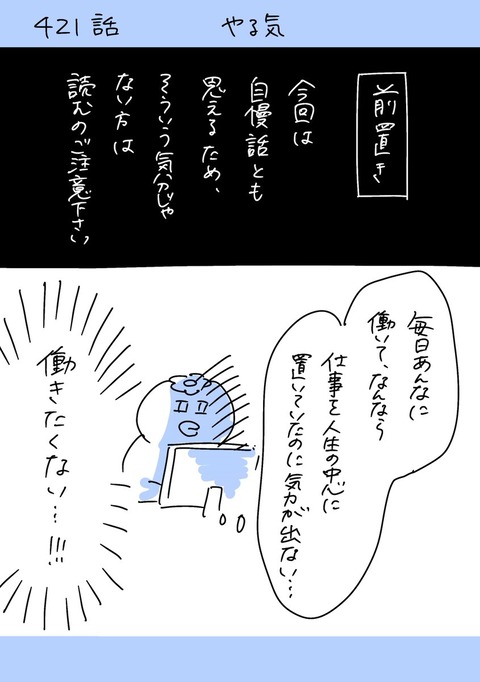 421話 やる気
前置き
今回は
自慢話とも
思えるため、
そういう気分じゃ
ない方は
読むのご注意下さい
毎日あんなに
働いて、なんなら
仕事を人生の中心に
置いていたのに気力が出ない…
働きたくない…!!!